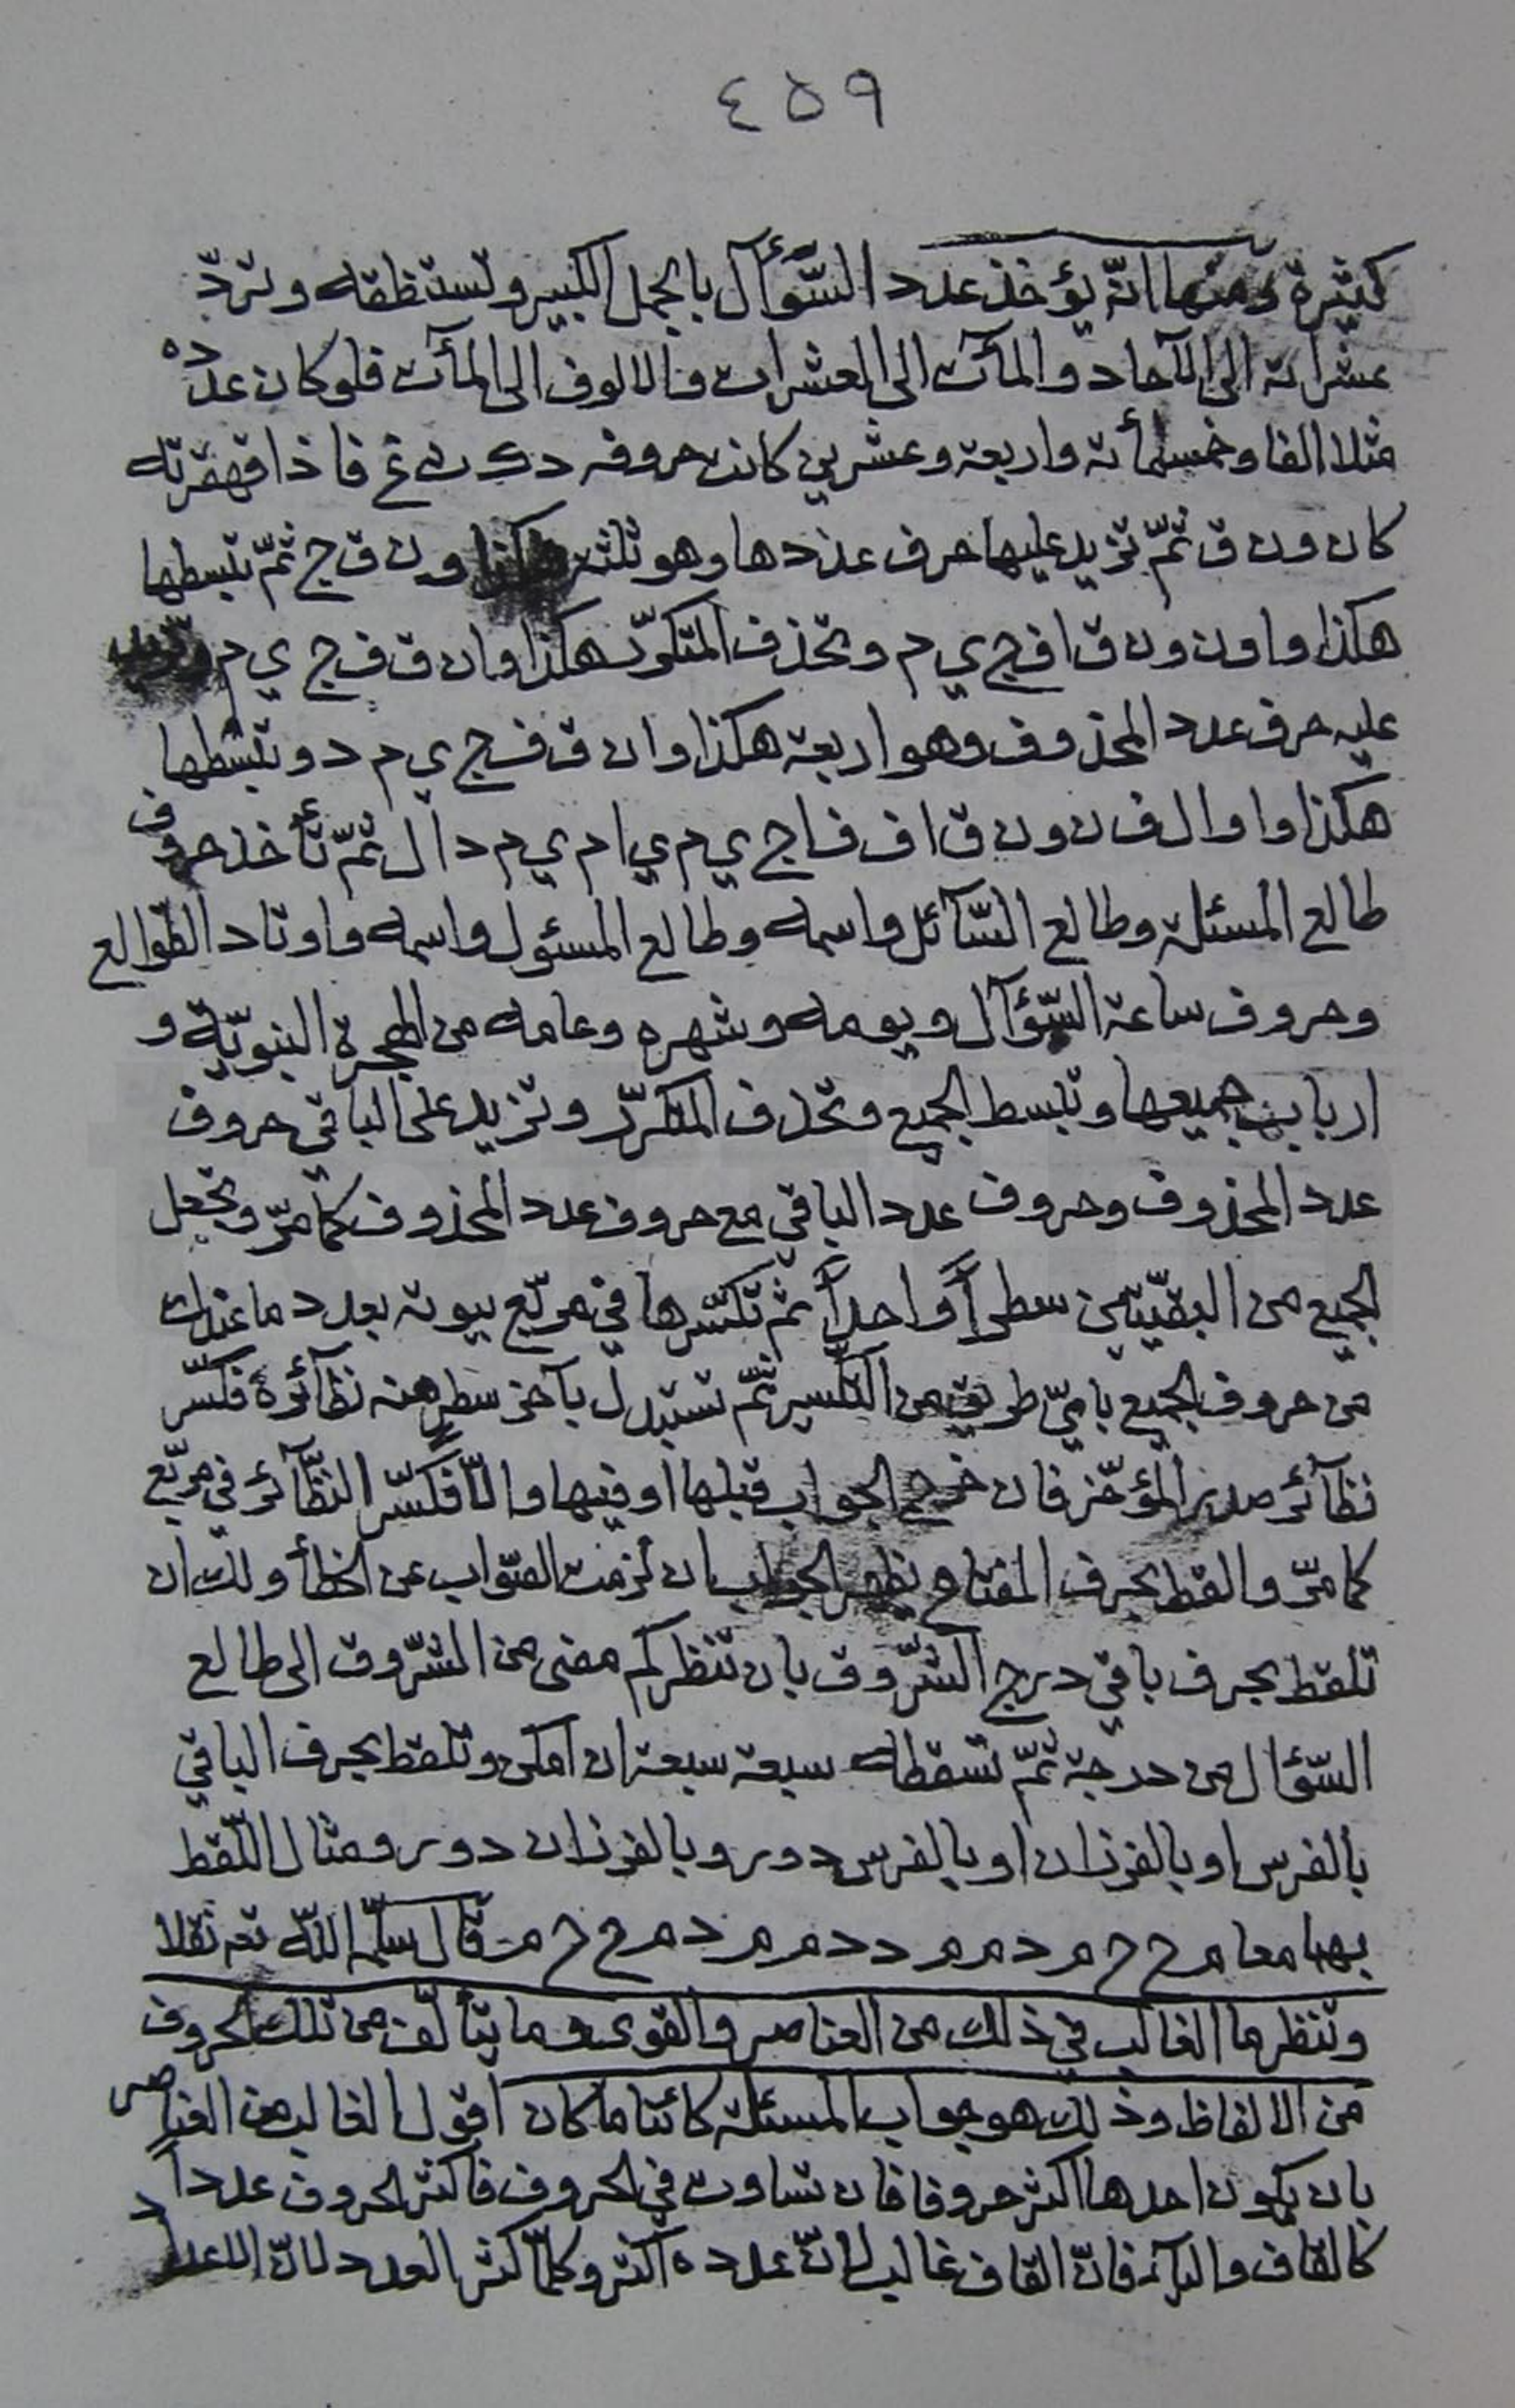 ٤٥٩
كثيرة ومنها انّه يؤخذ عدد السّؤآل بالجمل الكبير وتستنطقه وتردّ
عشراته الى الآحاد والمآت الى العشرات والالوف الى المآت فلو كان عدده
مثلا الفا وخمسمأة واربعة وعشرين كانت حروفه د ك ث غ فاذا قهقرته
كان و ن ق ثمّ تزيد عليها حرف عددها وهو ثلثة هكذا و ن ق ج ثمّ تبسطها
هكذا و ا و ن و ن ق ا ف ج ي م وتحذف المتكرّر هكذا و ا ن ق ف ج ي م وتزيد
عليه حرف عدد المحذوف وهو اربعة هكذا و ا ن ق ف ج ي م د وتبسطها
هكذا و ا و ا ل ف ن و ن ق ا ف ف ا ج ي م ي ا م ي م د ا ل ثمّ تأخذ حروف
طالع المسئلة وطالع السّآئل واسمه وطالع المسئول واسمه واوتاد الطّوالع
وحروف ساعة السّؤآل ويومه وشهره وعامه من الهجرة النبويّة و
ارباب جميعها وتبسط الجميع وتحذف المتكرّر وتزيد على الباقي حروف
عدد المحذوف وحروف عدد الباقي مع حروف عدد المحذوف كما مرّ وتجعل
الجميع من البقيّتين سطراً واحداً ثم تكسّرها في مربّع بيوته بعدد ما عندك
من حروف الجميع بايّ طريق من التكسير ثمّ تستبدل بآخر سطر منه نظآئره فكسّر
نظآئر صدر المؤخّر فان خرج الجواب قبلها او فيها والّا فكسّر النظّآئر في مربّع
كما مرّ والقط بحرف المفتاح يظهر الجواب ان لزمت الصّواب عن الخطأ ولك ان
تلقط بحرف باقي درج الشّروق بان تنظر كم مضى من الشّروق الى طالع
السّؤال من درجة ثمّ تسقطه سبعة سبعة ان امكن وتلقط بحرف الباقي
بالفرس او بالفرزان او بالفرس دور وبالفرزان دور ومثال اللّقط
قال سلّمه اللّه تعـ نقلا
وتنظر ما الغالب في ذلك من العناصر والقوى وما يتألّف من تلك الحروف
من الالفاظ وذلك هو جواب المسئلة كائنا ما كان اقول الغالب من العناصر
بان يكون احدها اكثر حروفا فان تساوت في الحروف فاكثر الحروف عدداً
كالقاف والبآء فانّ القاف غالب لانّ عدده اكثر وكلّما كثر العدد لانّ الاعداد